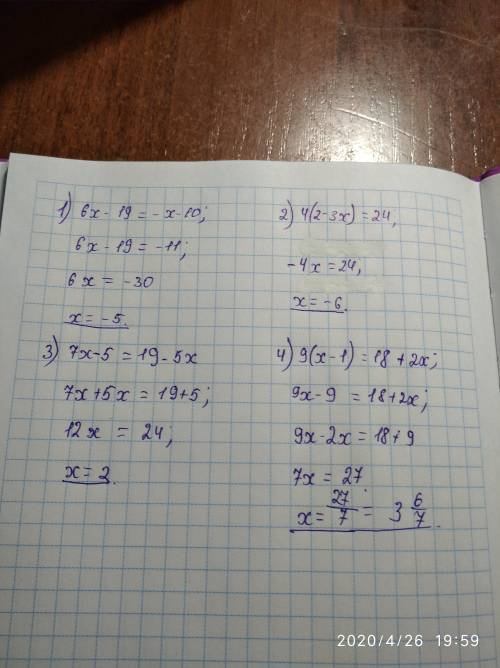 1) 6x - 19 = -x-10;
6x - 19 = -11;
6x = -30
x = -5.
2) 4(2-3x) = 24;
-4x = 24;
x = -6.
3) 7x-5 = 19-5x
7x+5x = 19+5;
12x = 24;
x = 2.
4) 9(x-1) = 18 + 2x;
9x-9 = 18+2x;
9x-2x = 18+9
7x = 27
x = 27/7 = 3 6/7
2020/4/26 19:59